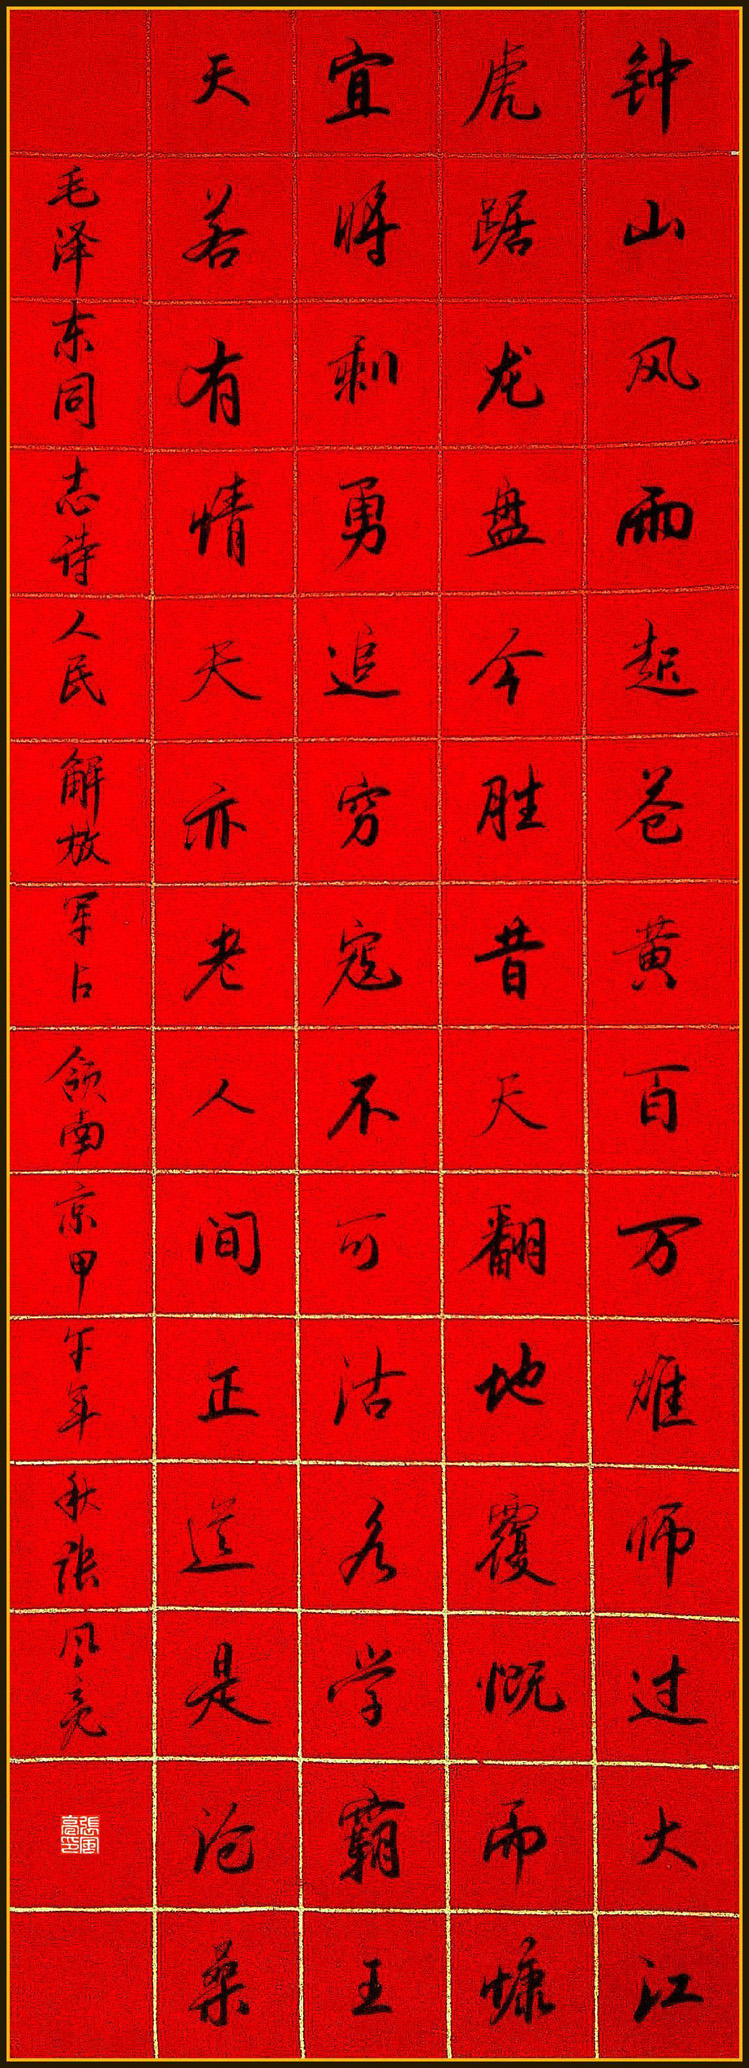 钟山风雨起苍黄百万雄师过大江
虎踞龙盘今胜昔天翻地覆慨而慷
宜将剩勇追穷寇不可沽名学霸王
天若有情天亦老人间正道是沧桑
毛泽东同志诗人民解放军占领南京甲午年秋张风亮
張風亮印